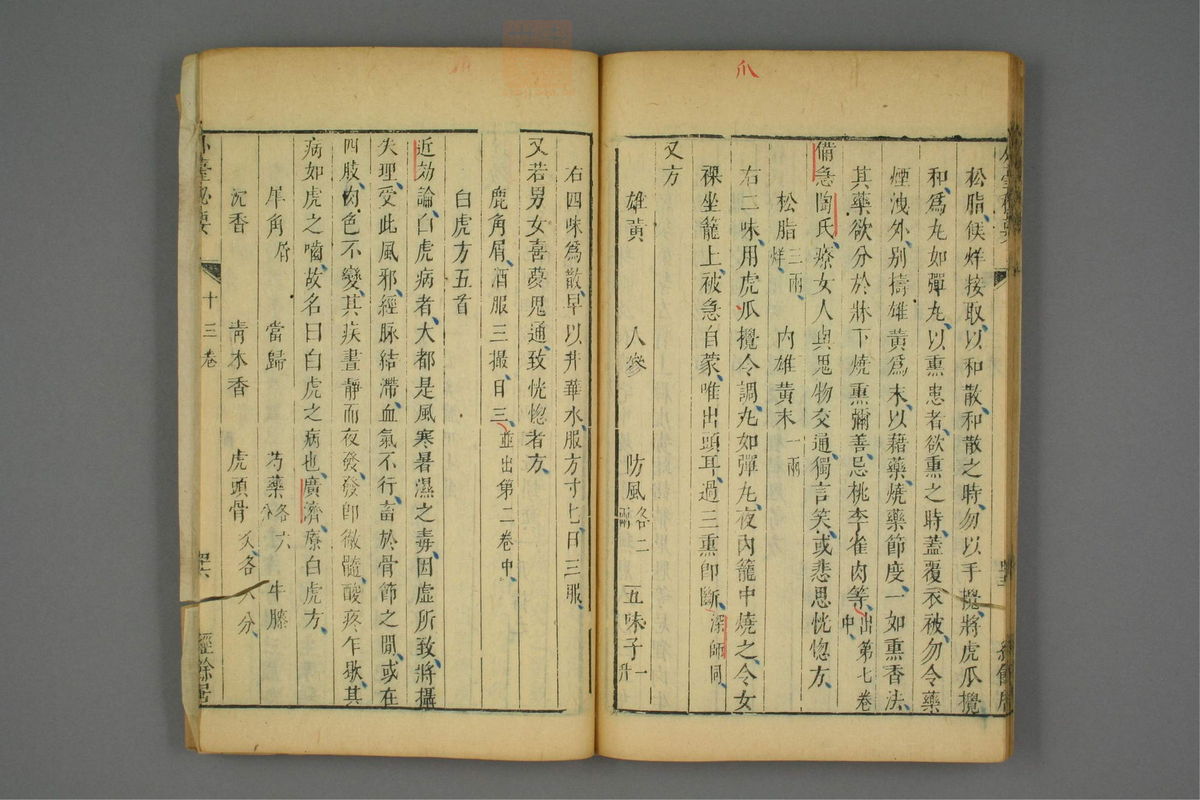 爪
松脂候烊接取以和散和散之時勿以手攪將虎瓜攪
和為丸如彈丸以熏患者欲熏之時蓋覆衣被勿令藥
煙洩外别擣雄黃爲末以藉藥燒藥節度一如熏香法
其藥欲分於牀下燒熏彌善忌桃李雀肉等出第七卷中
備急陶氏療女人與鬼物交通獨言笑或悲思恍惚方
松脂三兩烊 內雄黃末一兩
右二味用虎瓜攪令調丸如彈丸夜內籠中燒之令女
裸坐籠上被急自蒙唯出頭耳過三熏即斷深師同
又方
雄黃 人參 防風各二兩 五味子一升
右四味爲散早以井華水服方寸匕日三服
又若男女喜夢鬼通致恍惚者方
鹿角屑酒服三撮日三並出第二卷中
白虎方五首
近効論白虎病者大都是風寒暑濕之毒因虛所致將攝
失理受此風邪經脉結滯血氣不行畜於骨節之間或在
四肢肉色不變其疾晝靜而夜發發即徹髓酸疼乍歇其
病如虎之嚙故名曰白虎之病也廣濟療白虎方
犀角屑 當歸 芍藥各六分 牛膝
沉香 青木香 虎頭骨炙各八分
外臺秘要 十三卷 四六 經餘居